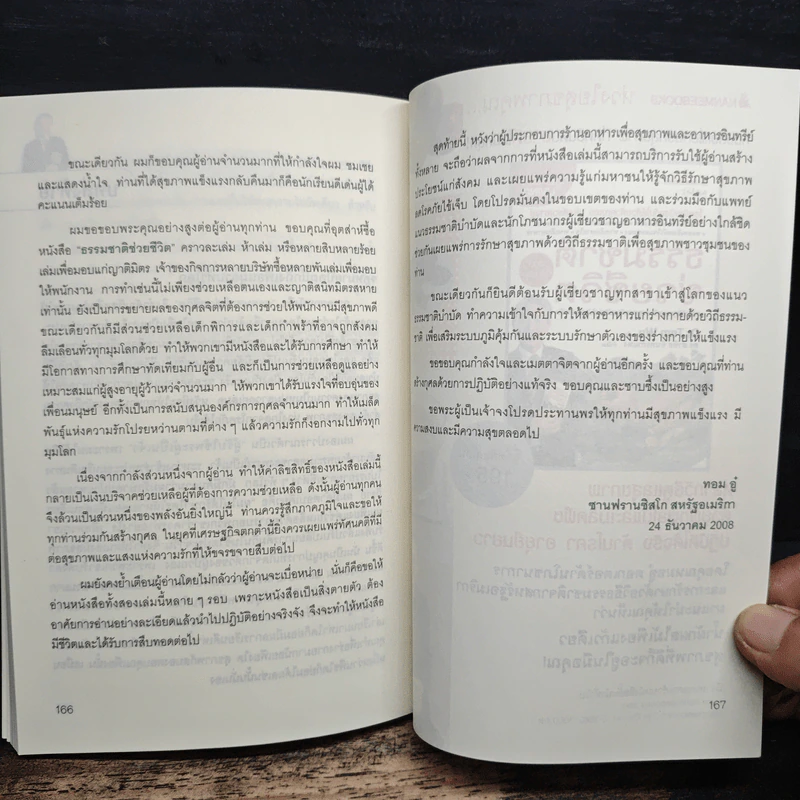 ขณะเดียวกัน ผมก็ขอบคุณผู้อ่านจำนวนมากที่ให้กำลังใจผม ชมเชย
และแสดงน้ำใจ ท่านที่ได้สุขภาพแข็งแรงกลับคืนมาก็คือนักเรียนดีเด่นผู้ได้
คะแนนเต็มร้อย
ผมขอขอบพระคุณอย่างสูงต่อผู้อ่านทุกท่าน ขอบคุณที่อุตส่าห์ซื้อ
หนังสือ "ธรรมชาติช่วยชีวิต" คราวละเล่ม ห้าเล่ม หรือหลายสิบหลายร้อย
เล่มเพื่อมอบแก่ญาติมิตร เจ้าของกิจการหลายบริษัทซื้อหลายพันเล่มเพื่อมอบ
ให้พนักงาน การทำเช่นนี้ไม่เพียงช่วยเหลือตนเองและญาติสนิทมิตรสหาย
เท่านั้น ยังเป็นการขยายผลของกุศลจิตที่ต้องการช่วยให้พนักงานมีสุขภาพดี
ขณะเดียวกันก็มีส่วนช่วยเหลือเด็กพิการและเด็กกำพร้าที่อาจถูกสังคม
ลืมเลือนทั่วทุกมุมโลกด้วย ทำให้พวกเขามีหนังสือและได้รับการศึกษา ทำให้
มีโอกาสทางการศึกษาทัดเทียมกับผู้อื่น และก็เป็นการช่วยเหลือดูแลอย่าง
เหมาะสมแก่ผู้สูงอายุผู้ว้าเหว่จำนวนมาก ให้พวกเขาได้รับแรงใจที่อบอุ่นของ
เพื่อนมนุษย์ อีกทั้งเป็นการสนับสนุนองค์กรการกุศลจำนวนมาก ทำให้เมล็ด
พันธุ์แห่งความรักโปรยหว่านตามที่ต่าง ๆ แล้วความรักก็งอกงามไปทั่วทุก
มุมโลก
เนื่องจากกำลังส่วนหนึ่งจากผู้อ่าน ทำให้ค่าลิขสิทธิ์ของหนังสือเล่มนี้
กลายเป็นเงินบริจาคช่วยเหลือผู้ที่ต้องการความช่วยเหลือ ดังนั้นผู้อ่านทุกคน
จึงล้วนเป็นส่วนหนึ่งของพลังอันยิ่งใหญ่นี้ ท่านควรรู้สึกภาคภูมิใจและขอให้
ทุกท่านร่วมกันสร้างกุศล ในยุคที่เศรษฐกิจตกต่ำนี้ยิ่งควรเผยแพร่ทัศนคติที่มี
ต่อสุขภาพและแสงแห่งความรักที่ให้ขจรขจายสืบต่อไป
ผมยังคงย้ำเตือนผู้อ่านโดยไม่กลัวว่าผู้อ่านจะเบื่อหน่าย นั่นก็คือขอให้
อ่านหนังสือทั้งสองเล่มนี้หลาย ๆ รอบ เพราะหนังสือเป็นสิ่งตายตัว ต้อง
อาศัยการอ่านอย่างละเอียดแล้วนำไปปฏิบัติอย่างจริงจัง จึงจะทำให้หนังสือ
มีชีวิตและได้รับการสืบทอดต่อไป
166
สุดท้ายนี้ หวังว่าผู้ประกอบการร้านอาหารเพื่อสุขภาพและอาหารอินทรีย์
ทั้งหลาย จะถือว่าผลจากการที่หนังสือเล่มนี้สามารถบริการรับใช้ผู้อ่านสร้าง
ประโยชน์แก่สังคม และเผยแพร่ความรู้แก่มหาชนให้รู้จักวิธีรักษาสุขภาพ
ลดโรคภัยไข้เจ็บ โดยโปรดมั่นคงในขอบเขตของท่าน และร่วมมือกับแพทย์
แนวธรรมชาติบำบัดและนักโภชนากรผู้เชี่ยวชาญอาหารอินทรีย์อย่างใกล้ชิด
ช่วยกันเผยแพร่การรักษาสุขภาพด้วยวิถีธรรมชาติเพื่อสุขภาพชาวชุมชนของ
ท่าน
ขณะเดียวกันก็ยินดีต้อนรับผู้เชี่ยวชาญทุกสาขาเข้าสู่โลกของแนว
ธรรมชาติบำบัด ทำความเข้าใจกับการให้สารอาหารแก่ร่างกายด้วยวิถีธรรม-
ชาติ เพื่อเสริมระบบภูมิคุ้มกันและระบบรักษาตัวเองของร่างกายให้แข็งแรง
ขอขอบคุณกำลังใจและเมตตาจิตจากผู้อ่านอีกครั้ง และขอบคุณที่ท่าน
สร้างกุศลด้วยการปฏิบัติอย่างแท้จริง ขอบคุณและซาบซึ้งเป็นอย่างสูง
ขอพระผู้เป็นเจ้าจงโปรดประทานพรให้ทุกท่านมีสุขภาพแข็งแรง มี
ความสงบและมีความสุขตลอดไป
ทอม อู๋
ซานฟรานซิสโก สหรัฐอเมริกา
24 ธันวาคม 2008
167